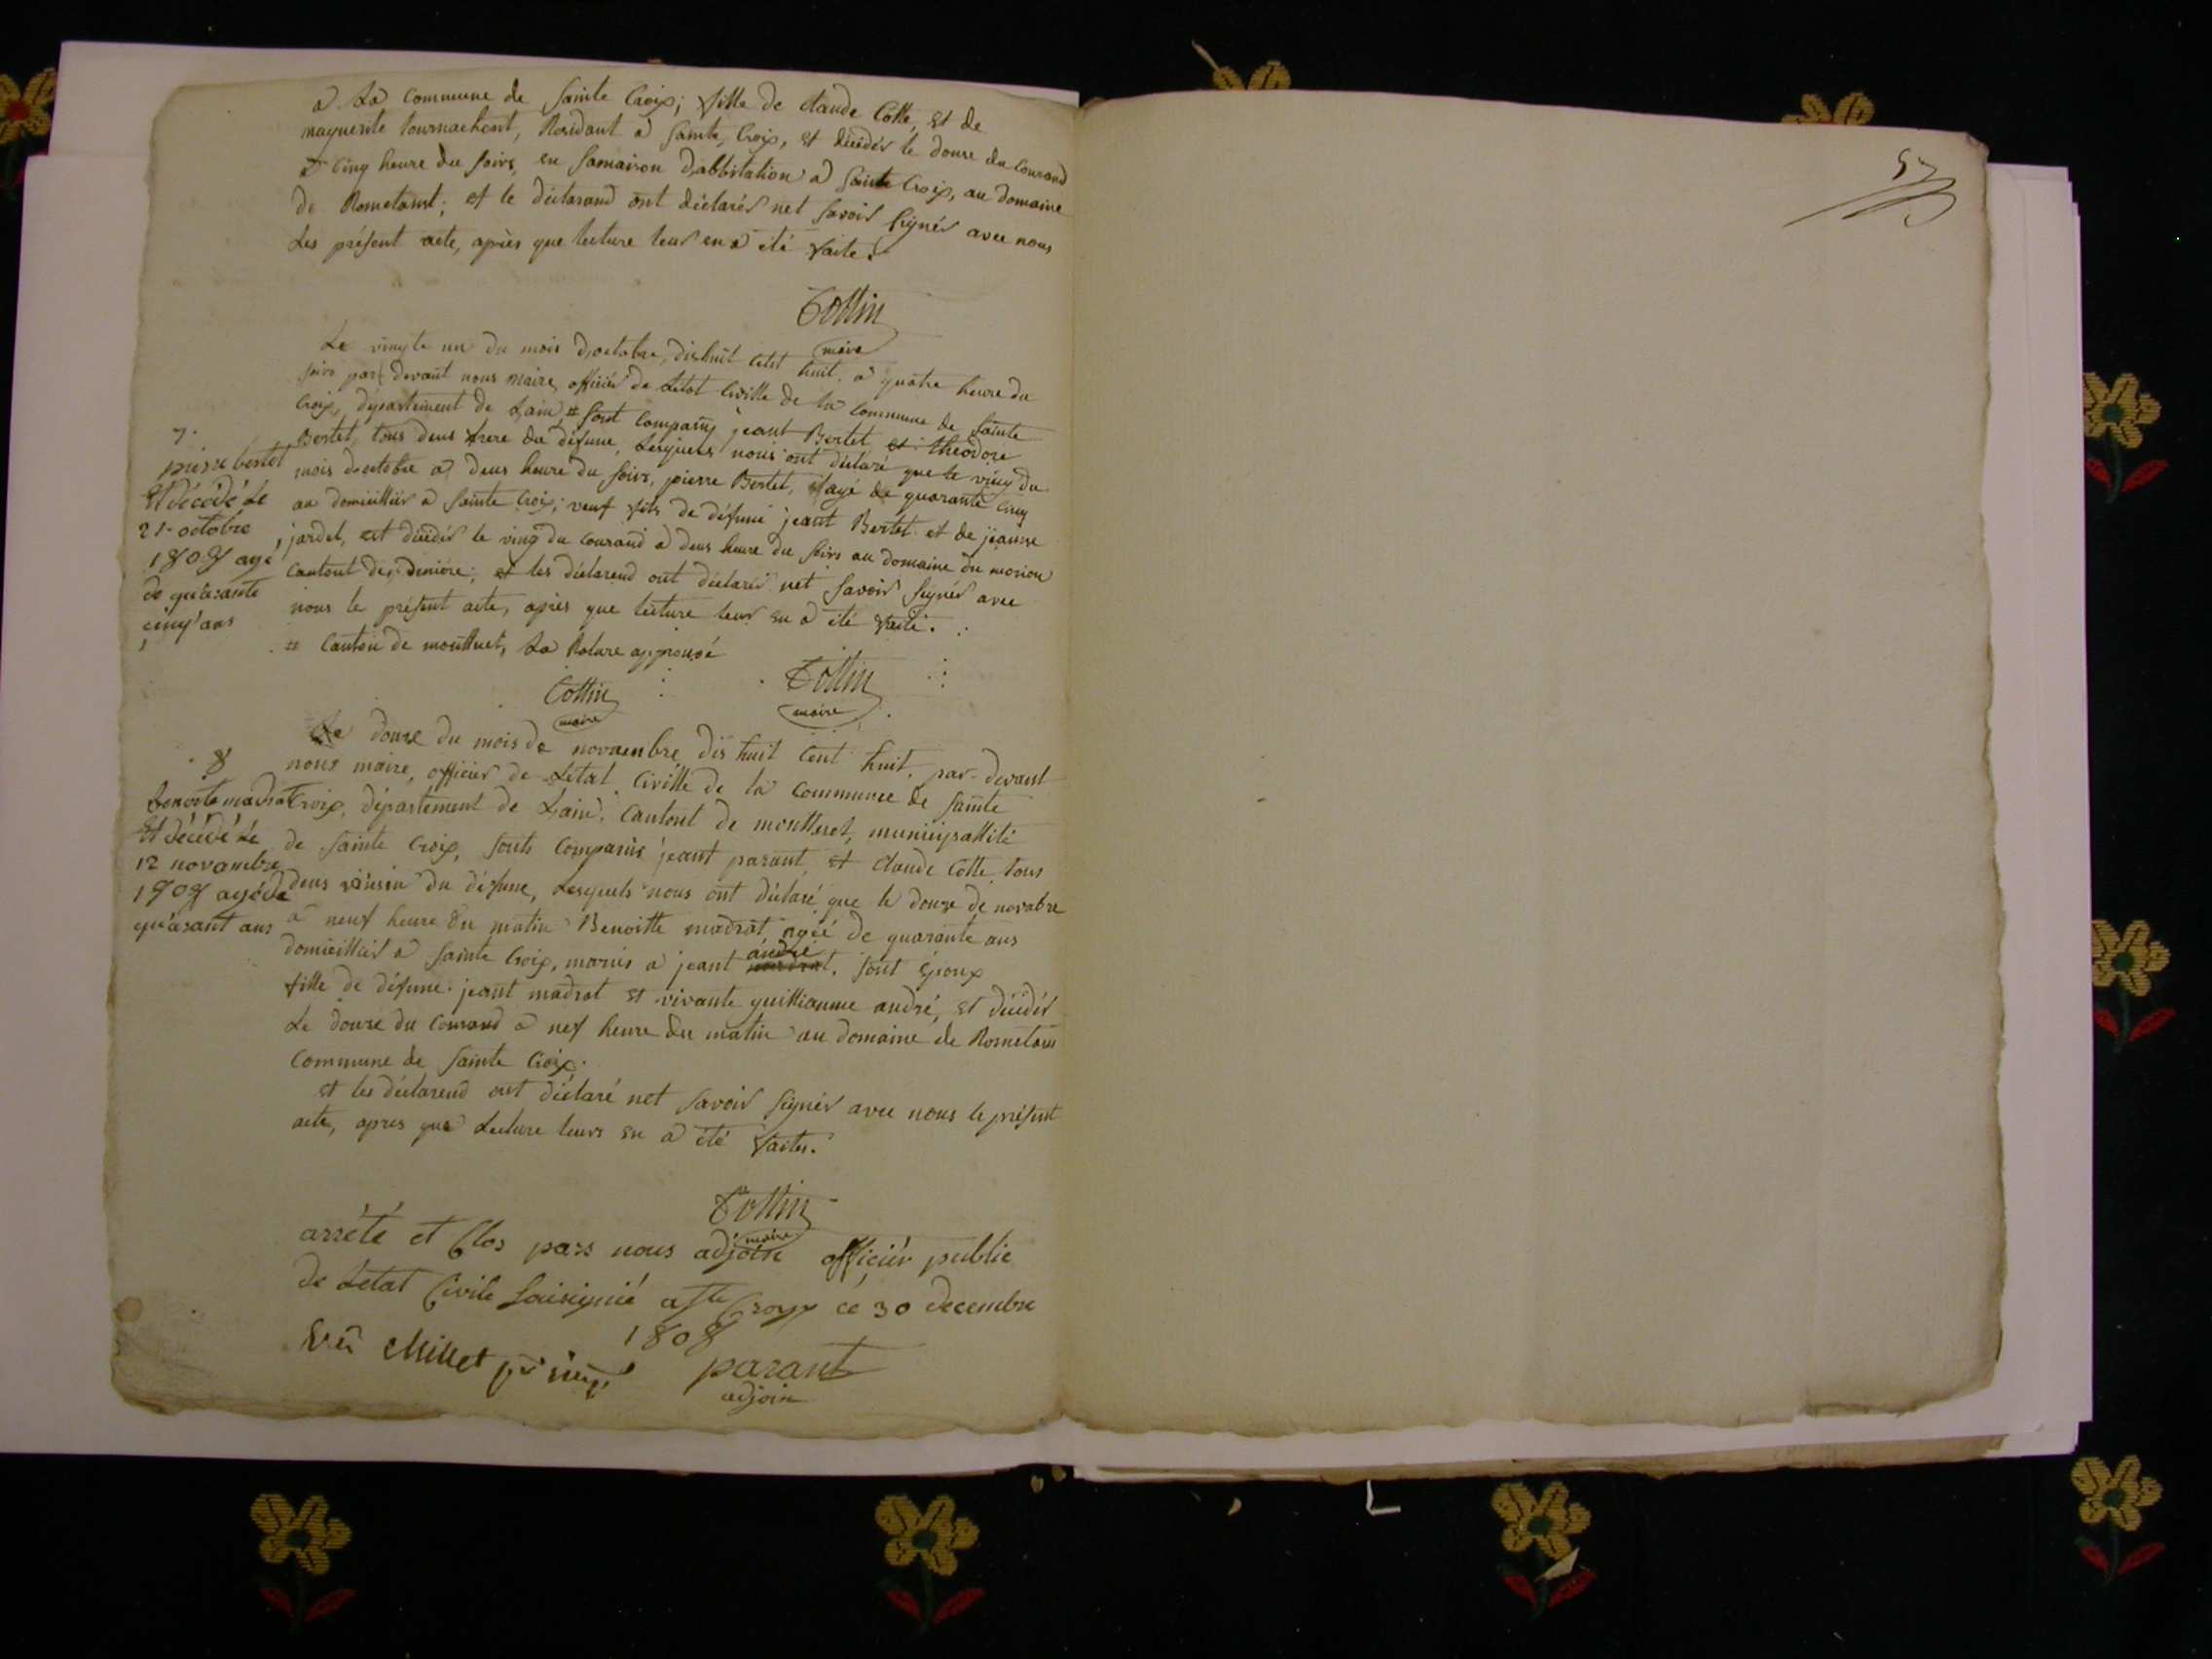 a La Commune de Sainte Croix; fille de Claude Cotte, et de
marguerite tournachont, Residant a Sainte Croix, et décédér le douse du Courand
a Cinq heure du Soirs, en Samaison d,abbitation a Sainte Croix, au domaine
de Rometant; et le déclarand ont déclarér net Savoir Signér avec nous
Les présent acte, après que lecture leur en a été faite.
Cottin
maire
Le vingte un du mois d,octobre, dishuit Cent huit, a quatre heure du
soirs part devant nous Maire, officier de Létat Civille de la Commune de Sainte
Croix, département de Lain # Sont Comparus jeant Bertet et theodore
Bertet, tous deus frere du défunc, Lesquels nous ont déclaré que le ving du
mois doctobre a deus heure du Soirs, pierre Bertet, agé de quarante Cinq
an domicilliér a Sainte Croix; veuf fils de défunc jeant Bertet et de jeanne
jardet, est décédér le ving du Courand a deus heure du Soirs au domaine du morion
Cantout des, diniére; et les déclarend ont déclarér net Savoir Signér avec
nous le présent acte, après que lecture leur en a été faite.
# Canton de montluet, La Rature approuvé
Cottin
maire
Cottin
maire
7.
pierre bertet
Et décédé Le
21 octobre
1808 agé
de quarante
cinq ans
Le douse du mois de novembre dis huit Cent huit, par-devant
nous maire, officier de Létat Civille de la Commune de Sainte
Croix, département de Lain, Cantont de montluet, municipallité
de Sainte Croix, Sonts Comparus jeant parant, et Claude Cotte tous
deus voisin du défunc, Lesquels nous ont déclaré que le douse de novabre
a neuf heure du matin Benoitte madrat agéé de quarante ans
domicilliér a Sainte Croix, mariér a jeant andré, Sont époux
fille de défunc jeant madrat et vivante guilliaume andré, et décédér
Le douse du Courand a nef heure du matin au domaine de Rometans
Commune de Sainte Croix.
et les déclarend ont déclaré net Savoir Signér avec nous le présent
acte, apres que Lecture leurs en a été faites.
Cottin
maire
8
benoite madrat
Et décédé Le
12 novambre
1808 agé de
quarant ans
arrété et Clos pars nous adjoin officiér public
de Letat Civile Souisignié a Ste Croix cé 30 decembre
1808
parant
adjoin
Vu Millet
57